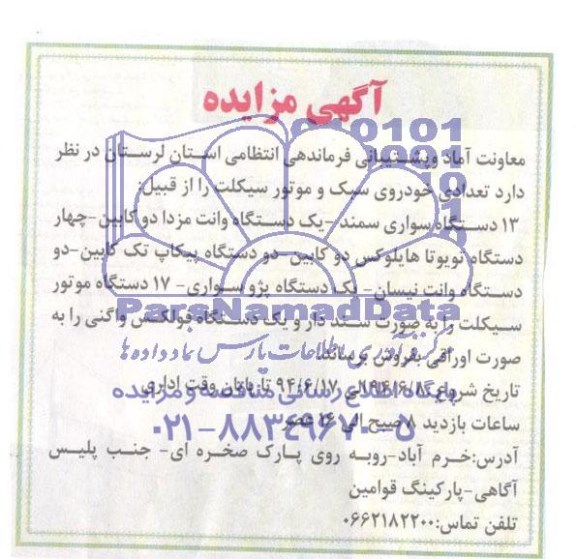 آگهی مزایده
معاونت آماد وپشتیبانی فرماندهی انتظامی استان لرستان در نظر
دارد تعدادی خودروی سبک و موتور سیکلت را از قبیل:
۱۳ دستگاه سواری سمند -یک دستگاه وانت مزدا دو کابین-چهار
دستگاه تویوتا هایلوکس دو کابین-دو دستگاه پیکاپ تک کابین-دو
دستگاه وانت نیسان- یک دستگاه پژو سواری- ۱۷ دستگاه موتور
ParsNamadData
سیکلت را به صورت سند دار و یک دستگاه فولکس واگنی را به
صورت اوراقی بفروش برساند.
تاریخ شروع ۹۴/۶/۸ الی ۹۴/۶/۱۷ تا پایان وقت اداری
پایگاه اطلاع رسانی مناقصه و مزایده
ساعات بازدید ۸ صبح الی عصر
۰۲۱-۸۸۳۴۹۶۷۰-۵
آدرس:خرم آباد-روبه روی پارک صخره ای- جنب پلیس
آگاهی-پارکینگ قوامین
تلفن تماس:۰۶۶۲۱۸۲۲۰۰